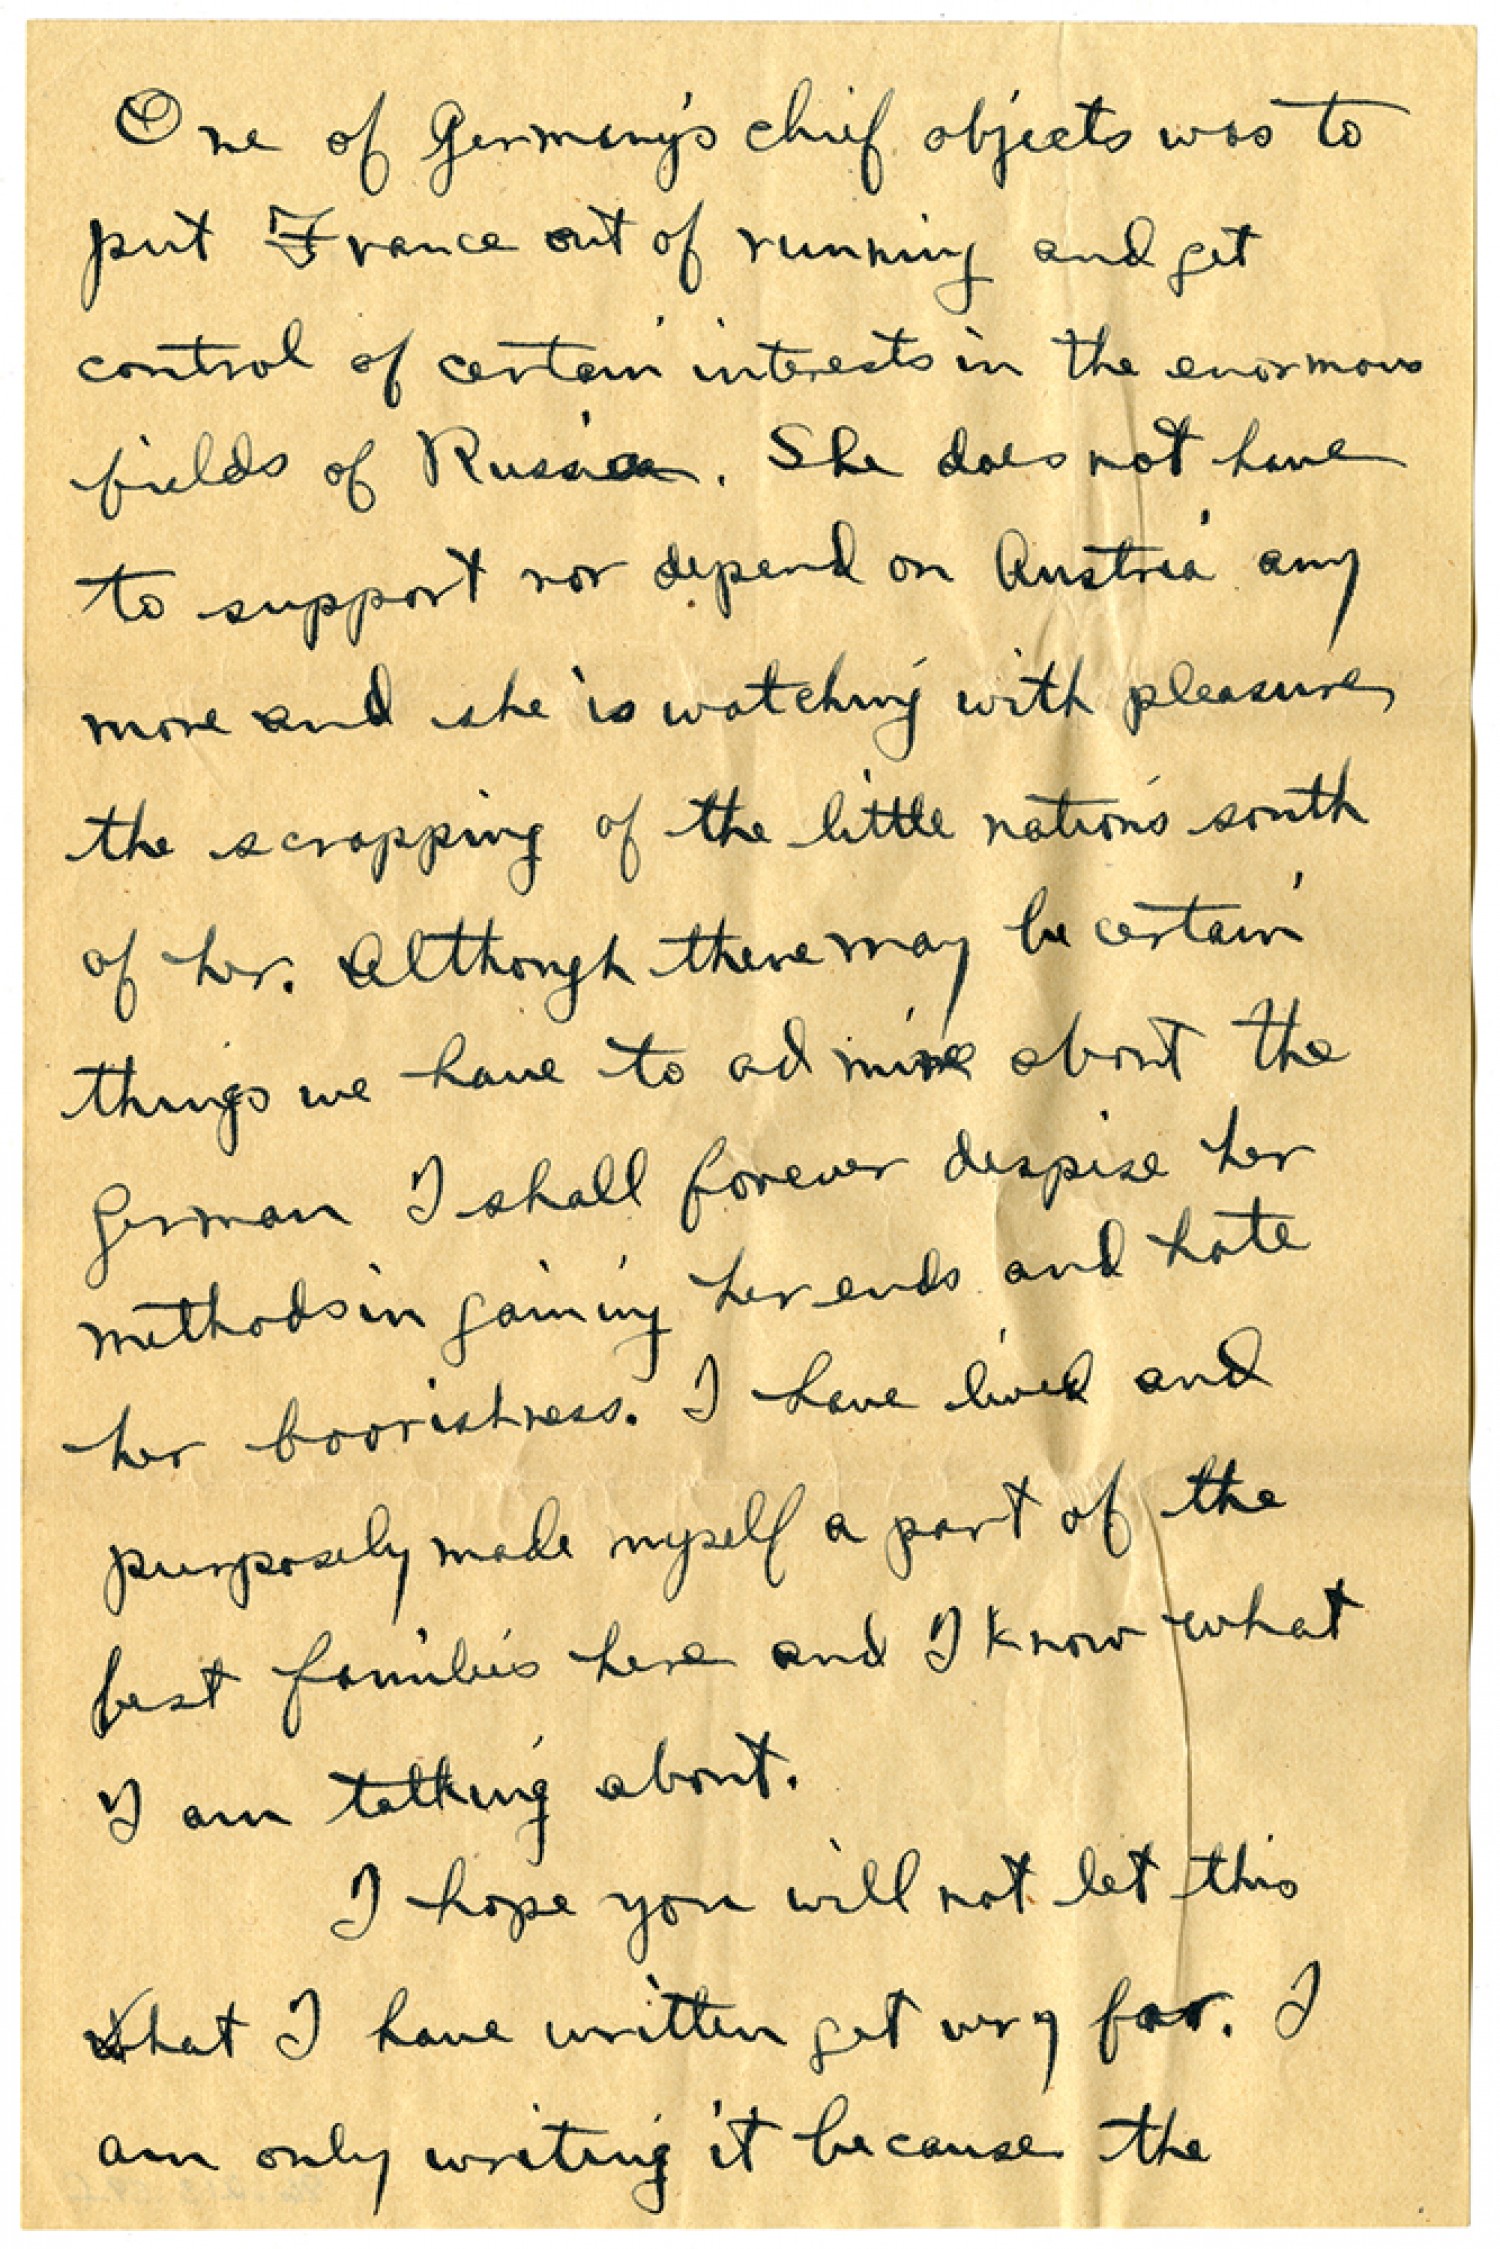 One of Germany's chief objects was to
put France out of running and get
control of certain interests in the enormous
fields of Russia. She does not have
to support nor depend on Austria any
more and she is watching with pleasure
the scrapping of the little nations south
of her. Although there may be certain
things we have to admire about the
German I shall forever despise her
methods in gaining her ends and hate
her boorishness. I have lived and
purposely made myself a part of the
best families here and I know what
I am talking about.
I hope you will not let this
what I have written get very far. I
am only writing it because the